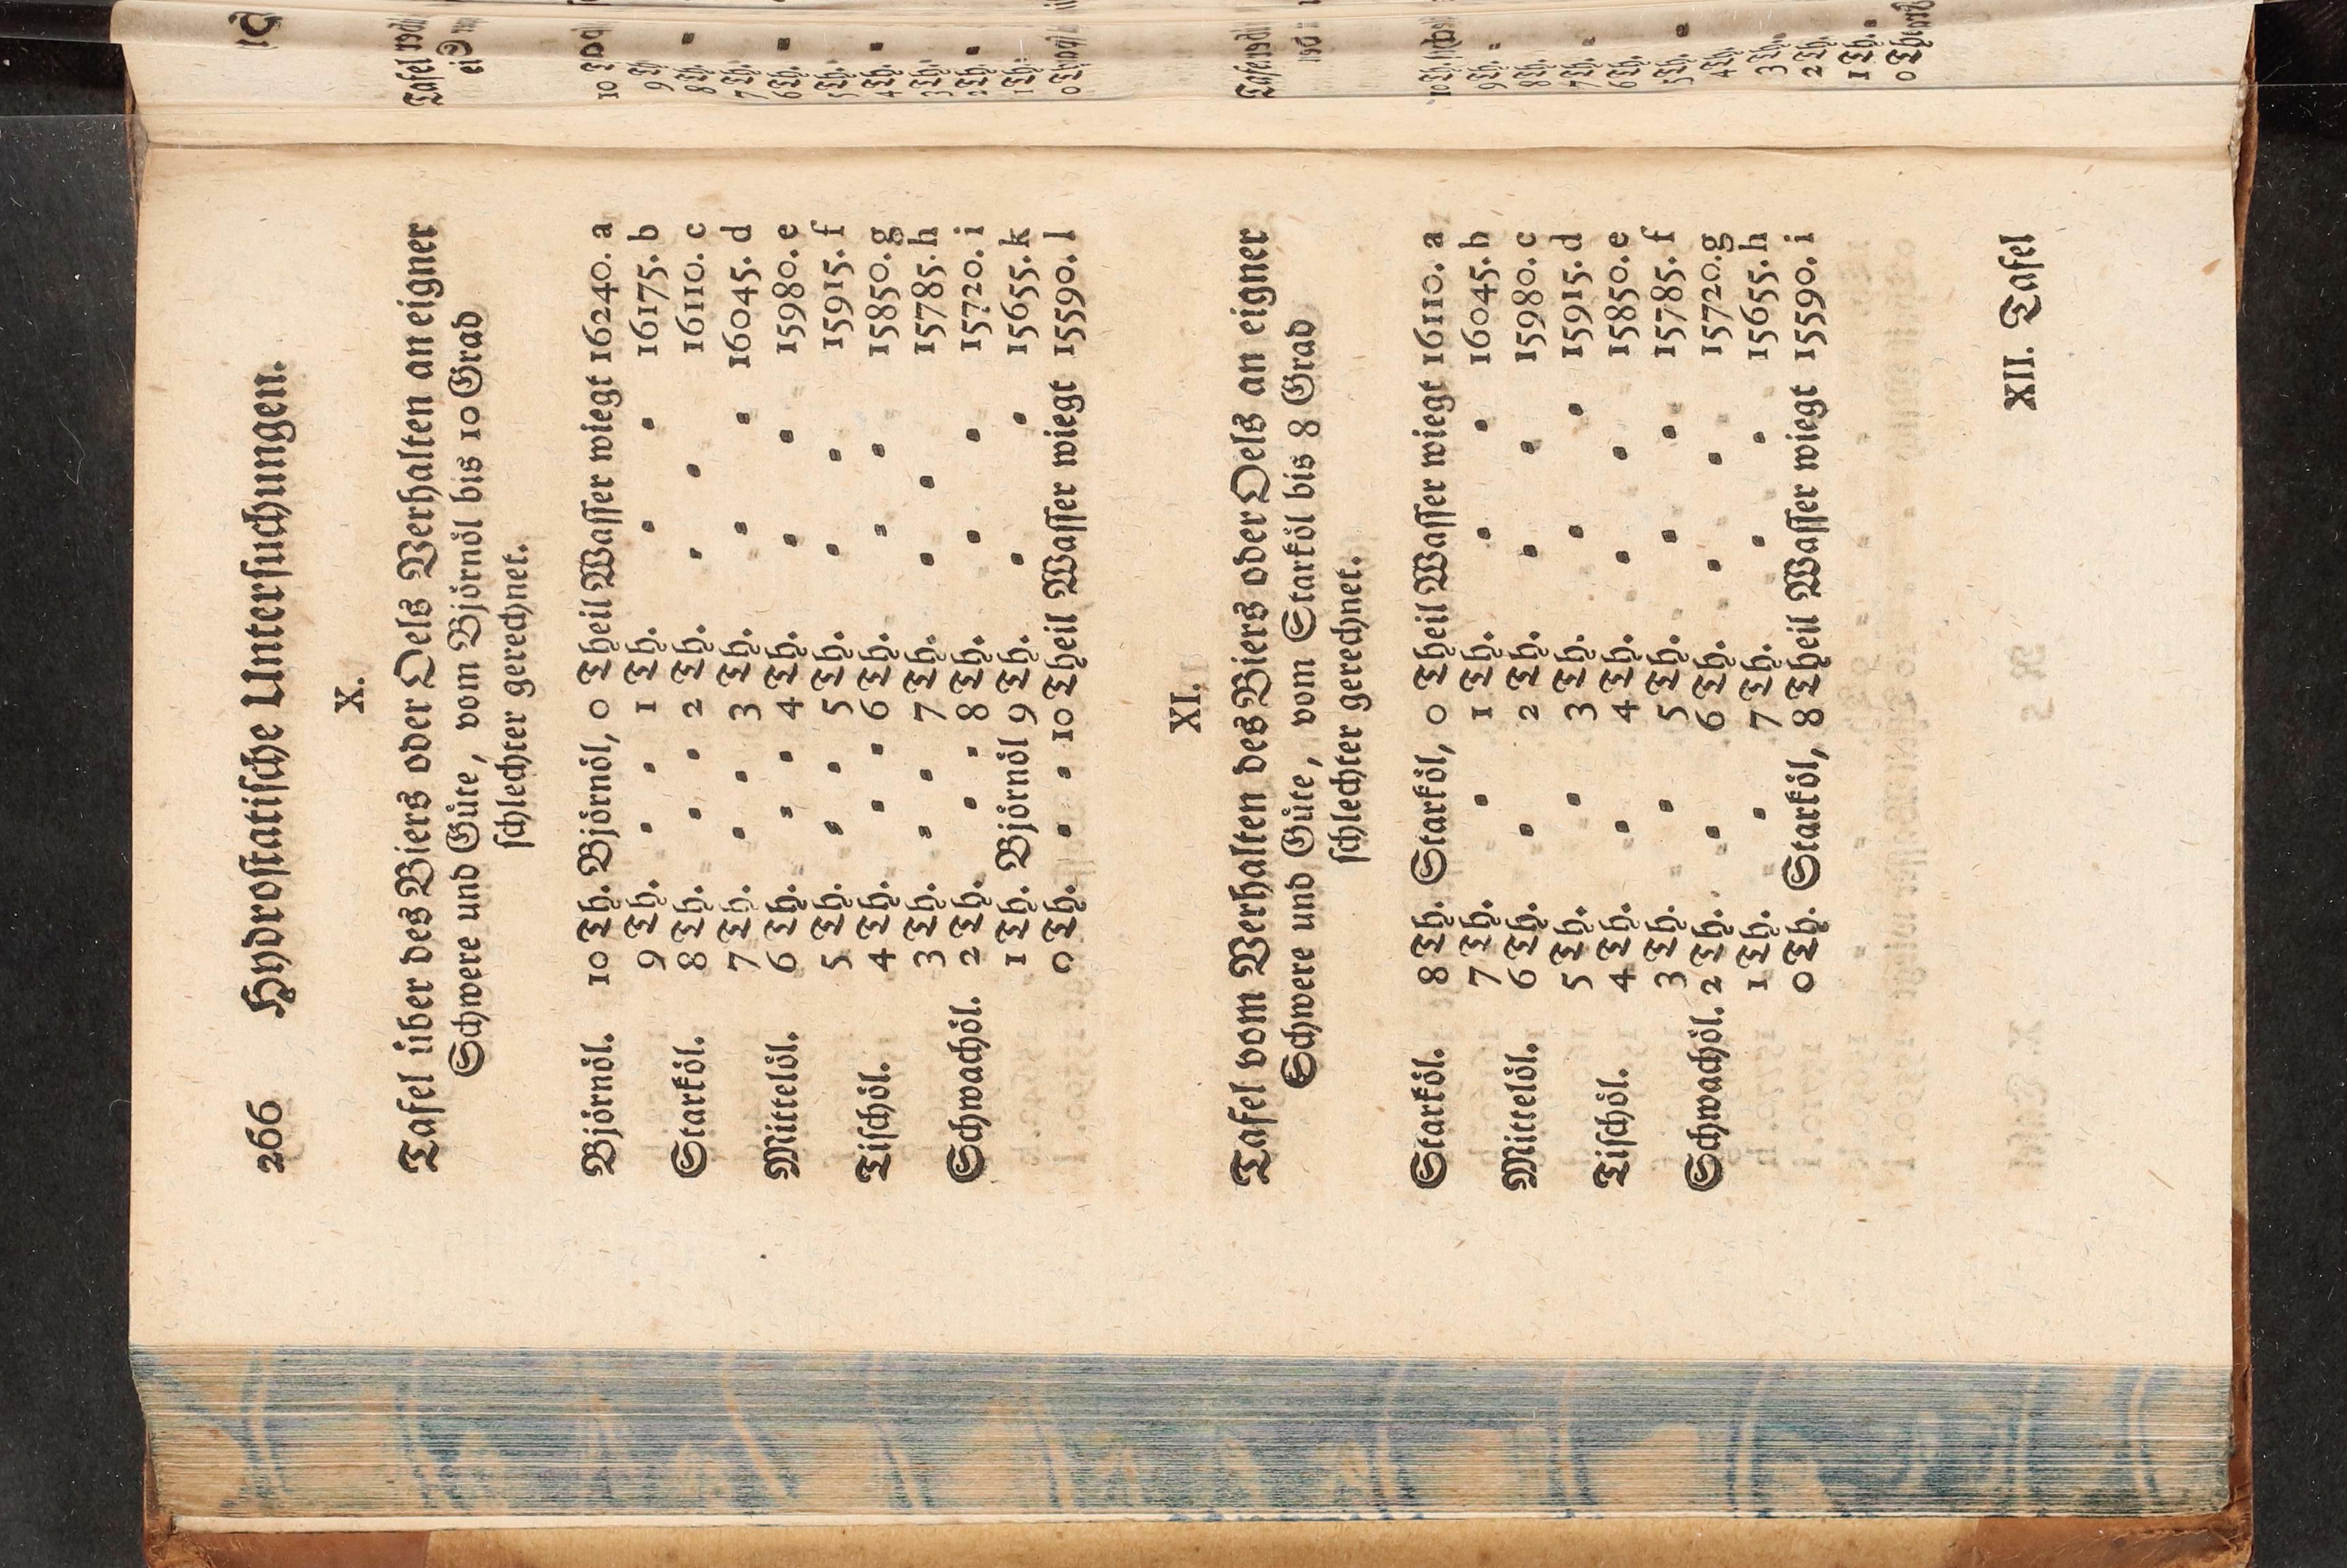 266 Hydrostatische Untersuchungen.
X.
Tafel über des Biers oder Oels Verhalten an eigner
Schwere und Güte, vom Björnöl bis 10 Grad
schlechter gerechnet.
Björnöl. 10 Th. Björnöl, 0 Theil Wasser wiegt 16240. a
9 Th. = = 1 Th. = = 16175. b
Starköl. 8 Th. = = 2 Th. = = 16110. c
7 Th. = = 3 Th. = = 16045. d
Mittelöl. 6 Th. = = 4 Th. = = 15980. e
5 Th. = = 5 Th. = = 15915. f
Tischöl. 4 Th. = = 6 Th. = = 15850. g
3 Th. = = 7 Th. = = 15785. h
Schwachöl. 2 Th. = = 8 Th. = = 15720. i
1 Th. Björnöl 9 Th. = = 15655. k
0 Th. = = 10 Theil Wasser wiegt 15590. l
XI.
Tafel vom Verhalten des Biers oder Oels an eigner
Schwere und Güte, vom Starköl bis 8 Grad
schlechter gerechnet.
Starköl. 8 Th. Starköl, 0 Theil Wasser wiegt 16110. a
7 Th. = 1 Th. = = 16045. b
Mittelöl. 6 Th. = 2 Th. = = 15980. c
5 Th. = 3 Th. = = 15915. d
Tischöl. 4 Th. = 4 Th. = = 15850. e
3 Th. = 5 Th. = = 15785. f
Schwachöl. 2 Th. = 6 Th. = = 15720. g
1 Th. = 7 Th. = = 15655. h
0 Th. Starköl, 8 Theil Wasser wiegt 15590. i
XII. Tafel